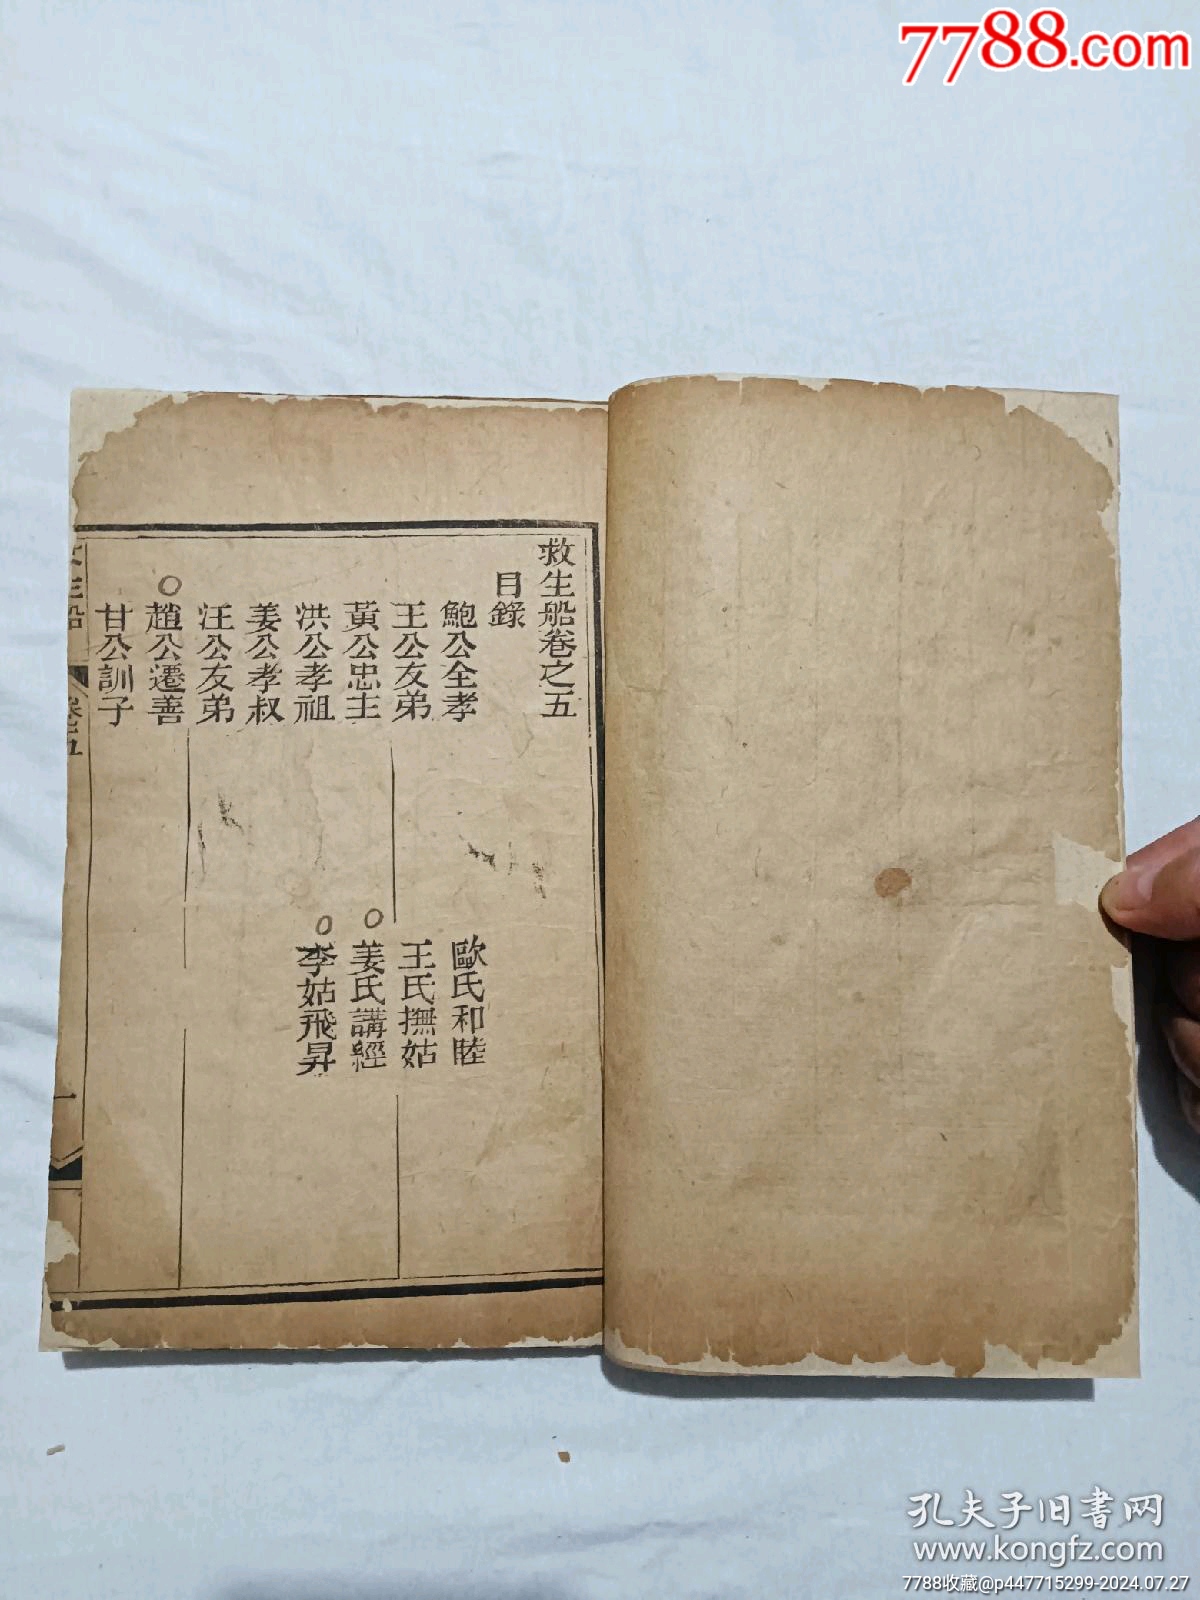 7788.com
救生船卷之五
目錄
鮑公全孝
歐氏和睦
王公友弟
王氏撫姑
黃公忠主
姜氏講經
洪公孝祖
李姑飛昇
姜公孝叔
汪公友弟
趙公遷善
甘公訓子
生船
卷五
一
孔夫子旧书网
www.kongfz.com
7788收藏@p447715299-2024.07.27